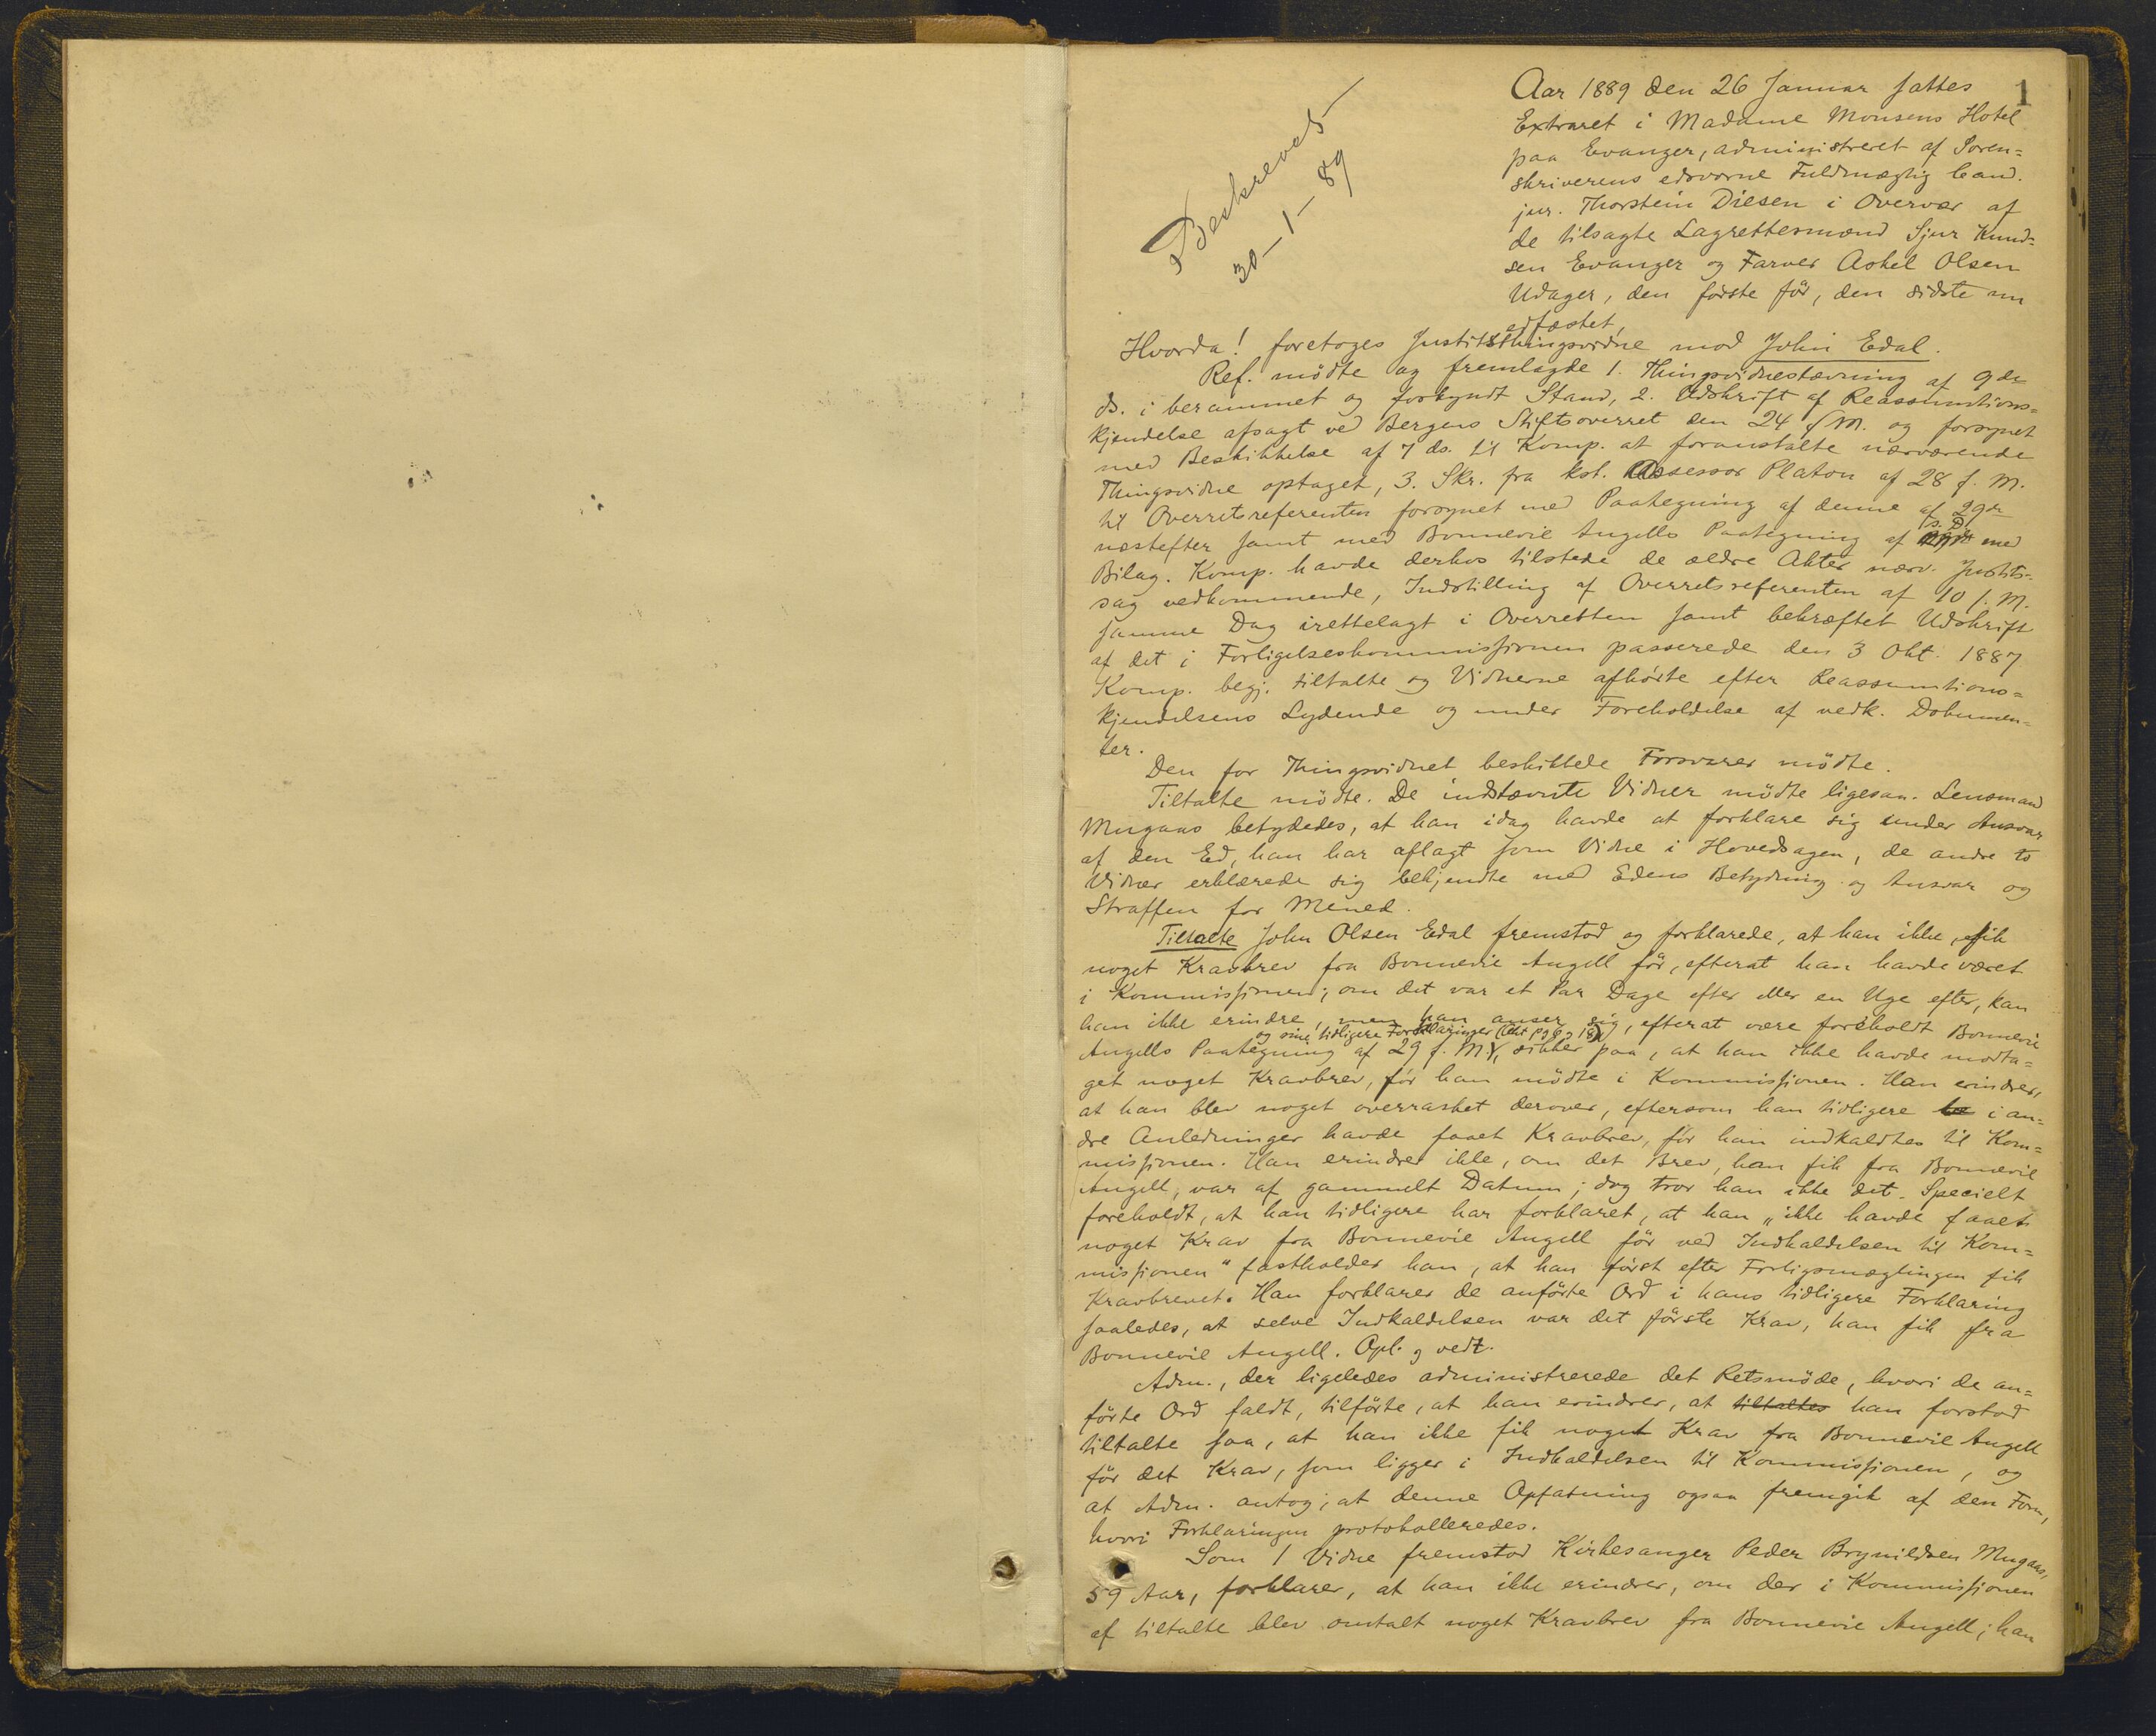 1
Aar 1889 den 26 Januar sattes
Extraret i Madame Monsens Hotel
paa Evanger, administreret af Soren=
skriverens edsvorne Fuldmægtig Cand.
jur. Thorstein Diesen i Overvær af
de tilsagte Lagrettesmænd Sjur Knud=
sen Evanger og Farver Askel Olsen
Udager, den første før, den sidste nu
edfæstet,
Beskrevet
30-1-89
Hvorda! foretoges Justitsthingsvidne mod John Edal.
Ref. mödte og fremlagde 1. Thingsvidnestævning af 9de
ds. i berammet og forkyndt Stand, 2. Udskrift af Reassumtions=
kjendelse afsagt ved Bergens Stiftsoverret den 24 f.M. og forsynet
med Beskikkelse af 7 ds. til Komp. at foranstalte nærværende
Thingsvidne optaget, 3. Skr. fra kst. Assessor Platou af 28 f. M.
til Overretsreferenten forsynet med Paategning af denne af 29de
næstefter samt med Bonnevie Angells Paategning af s. D. med
Bilag. Komp. havde derhos tilstede de ældre Akter nærv. Justits=
sag vedkommende, Indstilling af Overretsreferenten af 10 f. M.
samme Dag irettelagt i Overretten samt bekræftet Udskrift
af det i Forligelseskommissionen passerede den 3 Okt. 1887
Komp. begj. tiltalte og Vidnerne afhørte efter Reassumtions=
kjendelsens Lydende og under Foreholdelse af vedk. Dokumen=
ter.
Den for Thingsvidnet beskikkede Forsvarer mödte.
Tiltalte mödte. De indstævnte Vidner mödte ligesaa. Lensmand
Mugaas betydedes, at han idag havde at forklare sig under Ansvar
af den Ed, han har aflagt som Vidne i Hovedsagen, de andre to
Vidner erklærede sig bekjendte med Edens Betydning og Ansvar og
Straffen for Mened.
Tiltalte John Olsen Edal fremstod og forklarede, at han ikke fik
noget Kravbrev fra Bonnevie Angell før, efterat han havde været
i Kommissionen; om det var et Par Dage efter eller en Uge efter, kan
han ikke erindre, men han anser sig, efterat være foreholdt Bonnevie
og sine tidligere Forklaringer (Akt pg 6 og 18)
Angells Paategning af 29 f. M., sikker paa, at han ikke havde modta=
get noget Kravbrev, før han mödte i Kommissionen. Han erindrer,
at han blev noget overrasket derover, eftersom han tidligere i an=
dre Anledninger havde faaet Kravbrev, før han indkaldtes til Kom=
missionen. Han erindrer ikke, om det Brev, han fik fra Bonnevie
Angell, var af gammelt Datum; dog tror han ikke det. Specielt
foreholdt, at han tidligere har forklaret, at han „ikke havde faaet
noget Krav fra Bonnevie Angell før ved Indkaldelsen til Kom=
missionen" fastholder han, at han først efter Forligsmæglingen fik
Kravbrevet. Han forklarer de anførte Ord i hans tidligere Forklaring
saaledes, at selve Indkaldelsen var det første Krav, han fik fra
Bonnevie Angell. Opl. og vedt.
Adm., der ligeledes administrerede det Retsmöde, hvori de an=
førte Ord faldt, tilførte, at han erindrer, at tiltaltes han forstod
tiltalte saa, at han ikke fik noget Krav fra Bonnevie Angell
før det Krav, som ligger i Indkaldelsen til Kommissionen, og
at Adm. antog, at denne Opfatning ogsaa fremgik af den Form,
hvori Forklaringen protokolleredes.
Som 1 Vidne fremstod Kirkesanger Peder Brynildsen Mugaas,
59 Aar, forklarer, at han ikke erindrer, om der i Kommissionen
af tiltalte blev omtalt noget Kravbrev fra Bonnevie Angell; han